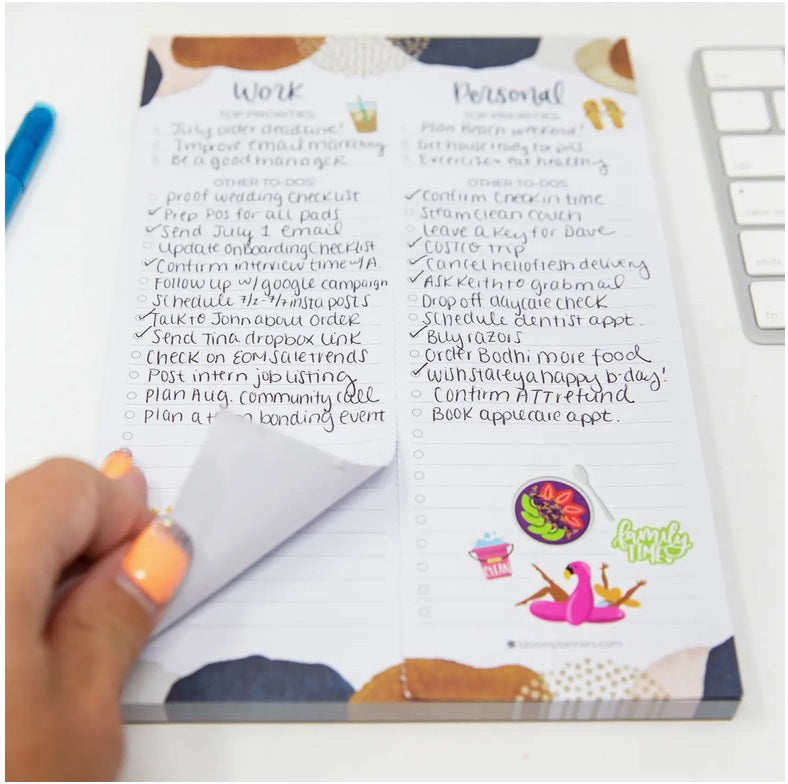 Work
TOP PRIORITIES:
1. July order deadline!
2. Improve email marketing
3. Be a good manager
OTHER TO-DOS:
Proof wedding Checklist
✓ Prep POs for all pads
✓ Send July 1 email
Update onboarding Checklist
✓ Confirm interview time w/A.
Follow up w/ google campaign
Schedule 7/2-7/7 insta posts
✓ Talk to John about order
✓ Send Tina dropbox link
Check on EOM sale trends
Post intern job listing
Plan Aug. community call
Plan a bonding event
Personal
TOP PRIORITIES:
1. Plan Beach weekend!
2. Get house ready for
3. Excercise + eat healthy
OTHER TO-DOS:
✓ Confirm Check in time
Steam clean couch
Leave a Key for Dave
✓ COSTCO trip
✓ Cancel hellofresh delivery
✓ ASK Keith to grab mail
Drop off daycare check
Schedule dentist appt.
✓ Buy razors
Order Bodhi more food
✓ Wish Stacey a happy b-day!
Confirm ATT refund
BOOK applecare appt.
CLEAN
family
TIME
bloomplanners.com
shift
fn